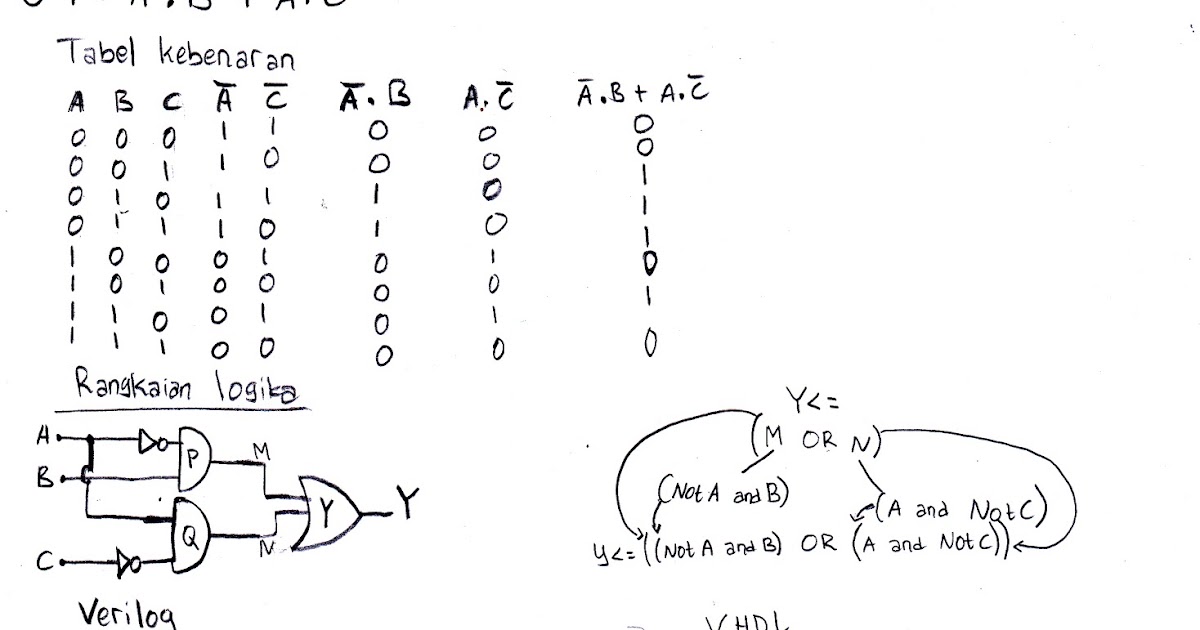 Tabel kebenaran
A B C A̅ C̅ A̅.B A.C̅ A̅.B + A.C̅
0 0 0 1 1 0 0 0
0 0 1 1 0 0 0 0
0 1 0 1 1 1 0 1
0 1 1 1 0 1 0 1
1 0 0 0 1 0 1 1
1 0 1 0 0 0 0 0
1 1 0 0 1 0 1 1
1 1 1 0 0 0 0 0
Rangkaian logika
A
B
C
P
Q
M
N
Y
Y
Y<=
(M OR N)
(Not A and B)
(A and Not C)
Y<= ((Not A and B) OR (A and Not C))
Verilog
VHDL